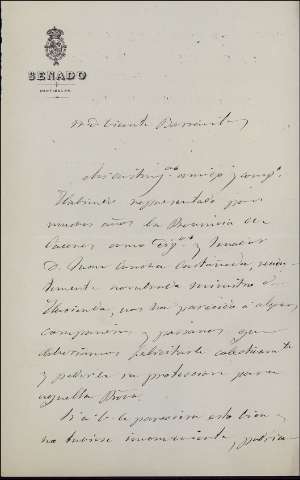 SENADO
PARTICULAR
Vicente Barrantes
amigo y comp.º
Habiendo representado por
muchos años la Provincia de
Caceres como Dip.do y Senador
D. Juan Castañeda, recien-
temente nombrado ministro de
Hacienda, nos ha parecido á algunos
compañeros y paisanos que
deberiamos felicitarle colectivam.te
y pedirle su proteccion para
aquella Prov.a
Si á V. le pareciera esto bien y
no tuviese inconveniente, podria-